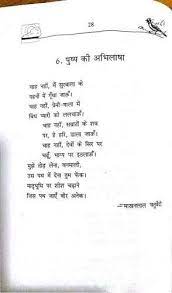 28
6. पुष्प की अभिलाषा
चाह नहीं, मैं सुरबाला के
गहनों में गूँथा जाऊँ।
चाह नहीं, प्रेमी-माला में
बिंध प्यारी को ललचाऊँ।
चाह नहीं, सम्राटों के शव
पर, हे हरि, डाला जाऊँ।
चाह नहीं, देवों के सिर पर
चढ़ूँ, भाग्य पर इठलाऊँ।
मुझे तोड़ लेना, वनमाली,
उस पथ में देना तुम फेंक।
मातृभूमि पर शीश चढ़ाने
जिस पथ जाएँ वीर अनेक।
—माखनलाल चतुर्वेदी